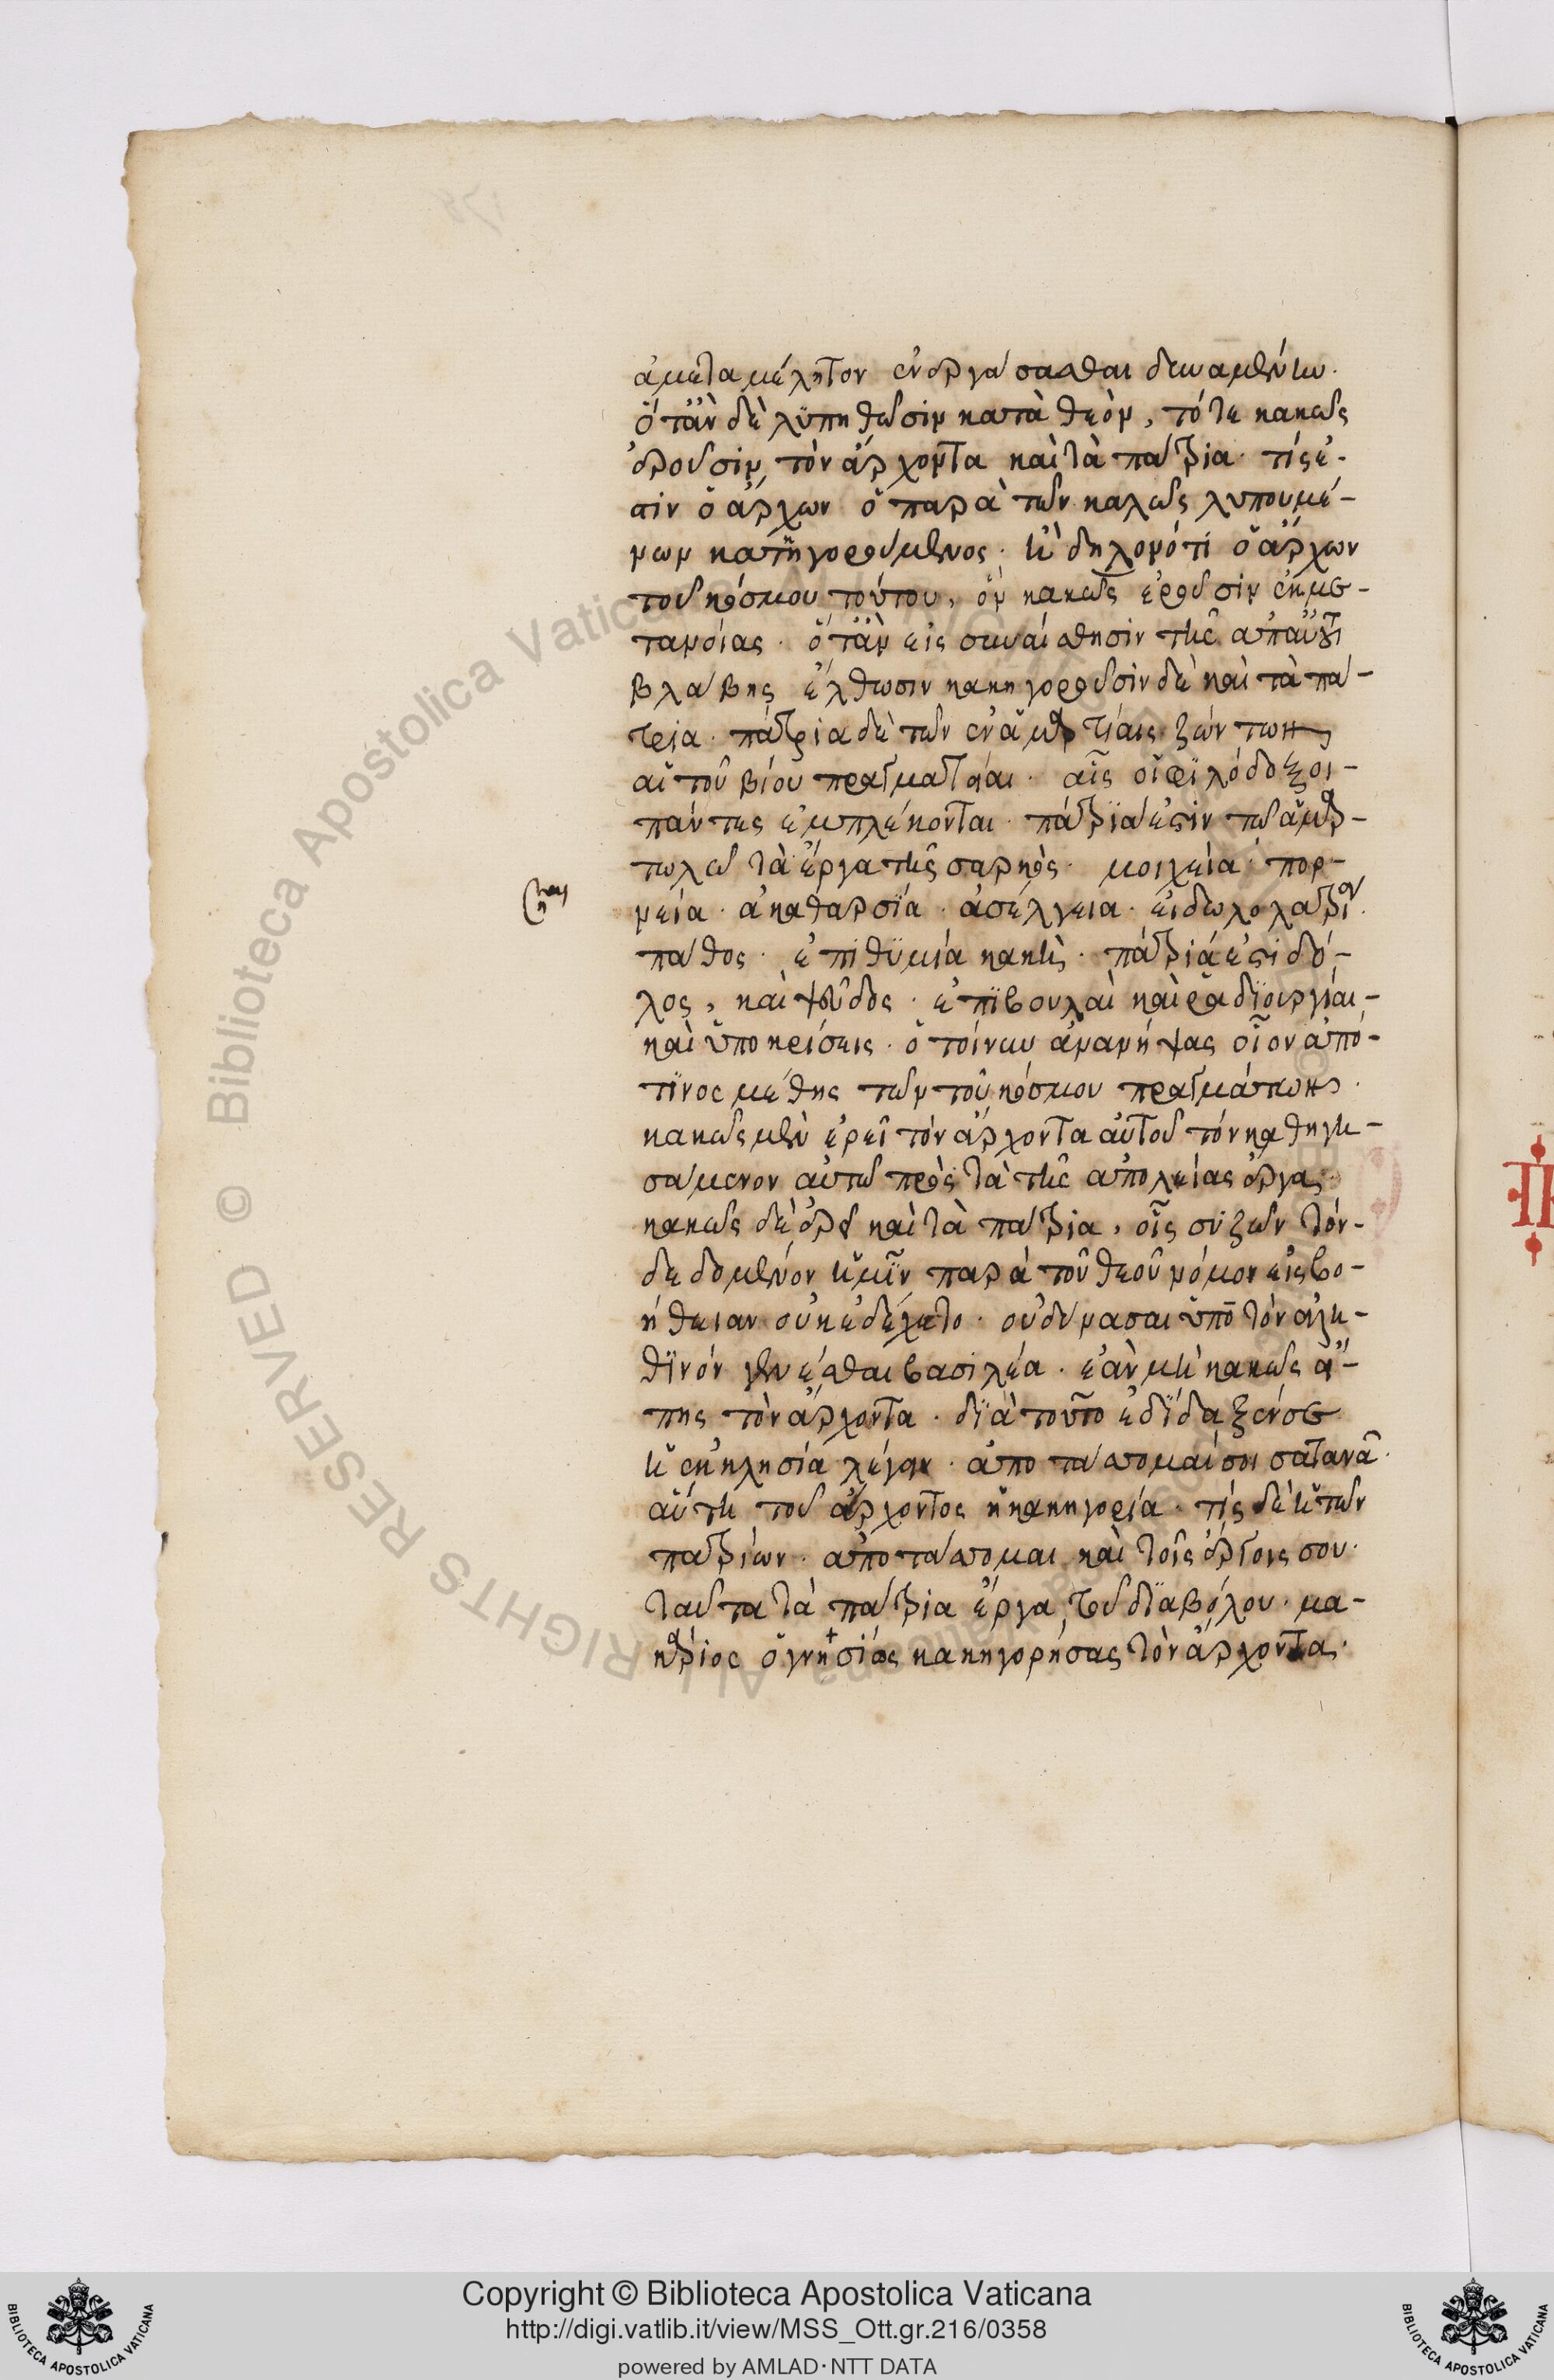 ἀμεταμέλητον ἐνεργάσασθαι δυναμένην.
ὅτἂν δὲ λϋπηθῶσιν κατὰ θεὸν, τότε κακῶς
ἐροῦσιν τὸν ἄρχοντα καὶ τὰ πάτρια· τίς ἐ-
στιν ὁ ἄρχων ὁ παρὰ τῶν καλῶς λυπουμέ-
νων κατηγορούμενος· ἢ δηλονότι ὁ ἄρχων
τοῦ κόσμου τούτου, ὃν κακῶς ἐροῦσιν ἐκ με-
τανοίας· ὅτἂν εἰς συναίσθησιν τῆς ἀπ αὐτοῦ
βλάβης ἔλθωσιν κακηγοροῦσιν δὲ καὶ τὰ πά-
τρια· πάτρια δὲ τῶν ἐν ἁμαρτίαις ζώντων
αἱ τοῦ βίου πραγματεῖαι· αἷς οἱ φιλόδοξοι-
πάντες ἐμπλέκονται· πάτρϊά ἐστιν τῶ ἁμαρ-
τωλῶ τὰ ἔργα τῆς σαρκός· μοιχεία· πορ-
νεία· ἀκαθαρσΐα· ἀσέλγεια· εἰδωλολατρία·
πάθος· ἐπιθϋμία κακὴ· πάτριά ἐστι δό-
λος, καὶ ψεῦδος· ἐπϊβουλαὶ καὶ ῥαδϊουργίαι-
καὶ ὑποκρίσεις· ὁ τοίνυν ἀνανήψας οἷον ἀπό-
τϊνος μέθης τῶν τοῦ κόσμου πραγμάτων·
κακῶς μὲν ἐρεῖ τὸν ἄρχοντα αὐτοῦ τὸν καθηγη-
σάμενον αὐτῶ πρὸς τὰ τῆς ἀπολείας ἔργα·
κακῶς δὲ ἐρεῖ καὶ τὰ πάτρια, οἷς συζῶν τόν-
δεδομένον ἡμῖν παρὰ τοῦ θεοῦ νόμον εἰς βο-
ήθειαν οὐκ ἐδέχετο· οὐ δύνασαι ὑπὸ τὸν ἀλη-
θϊνόν γενέσθαι βασιλέα· ἐὰν μὴ κακῶς εἴ-
πης τὸν ἄρχοντα· δϊὰ τοῦτο ἐδΐδαξέν σε
ἡ ἐκκλησία λέγειν· ἀποτάσσομαί σοι σατανᾶ·
αὕτη τοῦ ἄρχοντος ἡ κακηγορία· τίς δὲ ἡ τῶν
πατρίων· ἀποτάσσομαι καὶ τοῖς ἔργοις σου·
ταῦτα τὰ πάτρια ἔργα τοῦ δϊαβόλου· μα-
κάριος ὁ γνησίως κακηγορήσας τὸν ἄρχοντα·
Copyright © Biblioteca Apostolica Vaticana
http://digi.vatlib.it/view/MSS_Ott.gr.216/0358
powered by AMLAD·NTT DATA